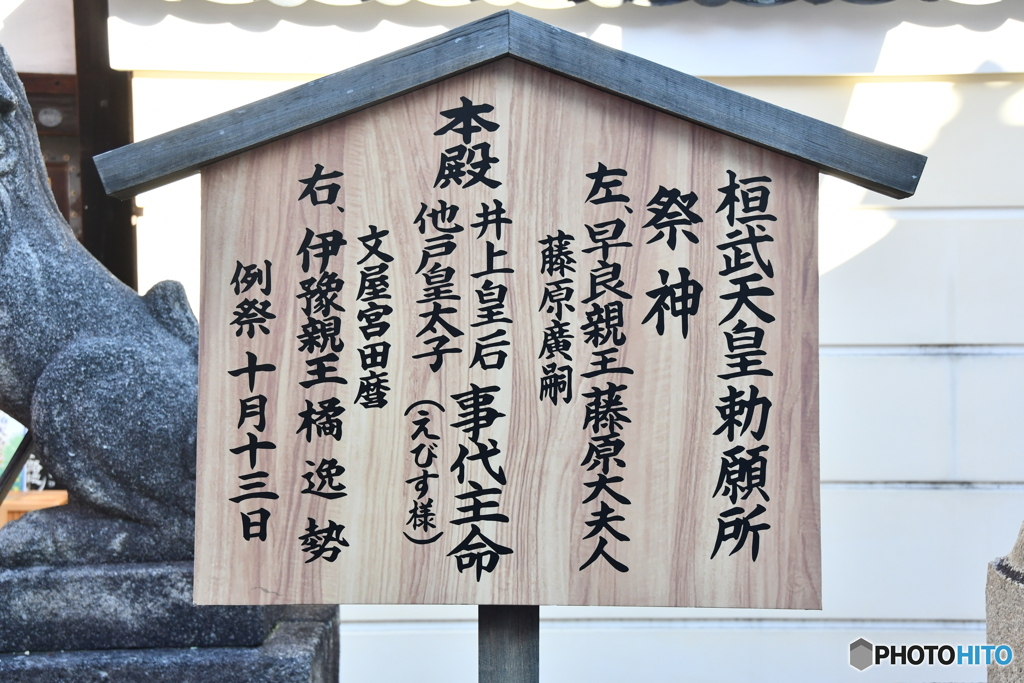 桓武天皇勅願所
祭神
左、早良親王藤原大夫人
藤原廣嗣
本殿
井上皇后
事代主命
他戸皇太子
(えびす様)
文屋宮田麿
右、伊豫親王橘逸勢
例祭十月十三日
PHOTOHITO